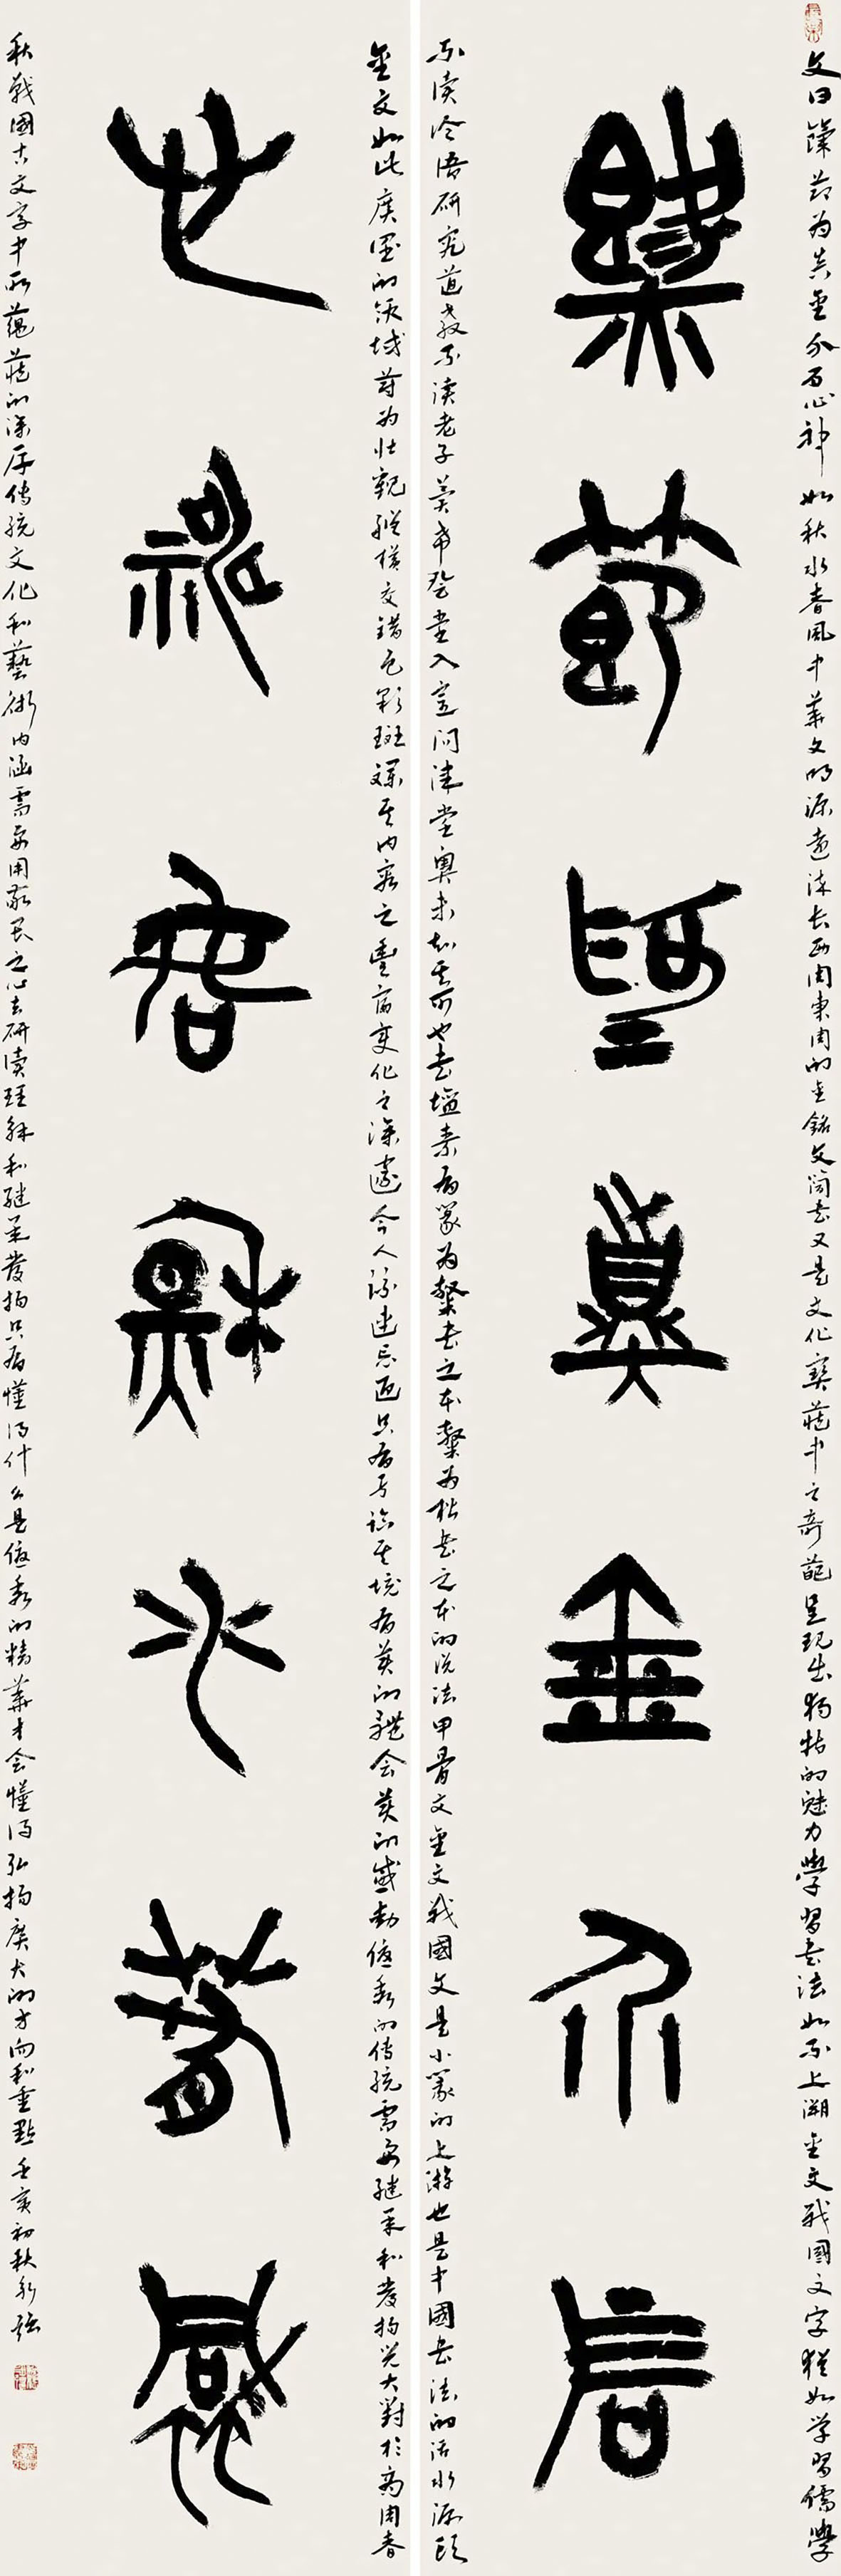 文曰節為真金介石心神如秋水春風中華文明源遠流長西周東周的金銘文簡書又是文化寶藏中之奇葩呈現出獨特的魅力學習書法如不上溯金文戰國文字猶如學習儒學
節真金介石
不讀論語研究道教不讀老子莫希登堂入室問津堂奧未知其可也書壇素有篆為隸書之本隸為楷書之本的说法甲骨文金文戰國文是小篆的上游也是中國書法的活水源頭
金文如此廣闊的領域蔚為壯觀縱橫交錯色彩斑斕其內容之豐富變化之深邃令人流連忘返只有身臨其境有美的體会美的感動優秀的傳統需要繼承和發揚光大對於商周春
心神秋水春風
秋戰國古文字中所蘊藏的深厚傳統文化和藝術內涵需要用敬畏之心去研讀理解和繼承發揚只有懂得什么是優秀的精華才会懂得弘揚廣大的方向和重點壬寅初秋永強